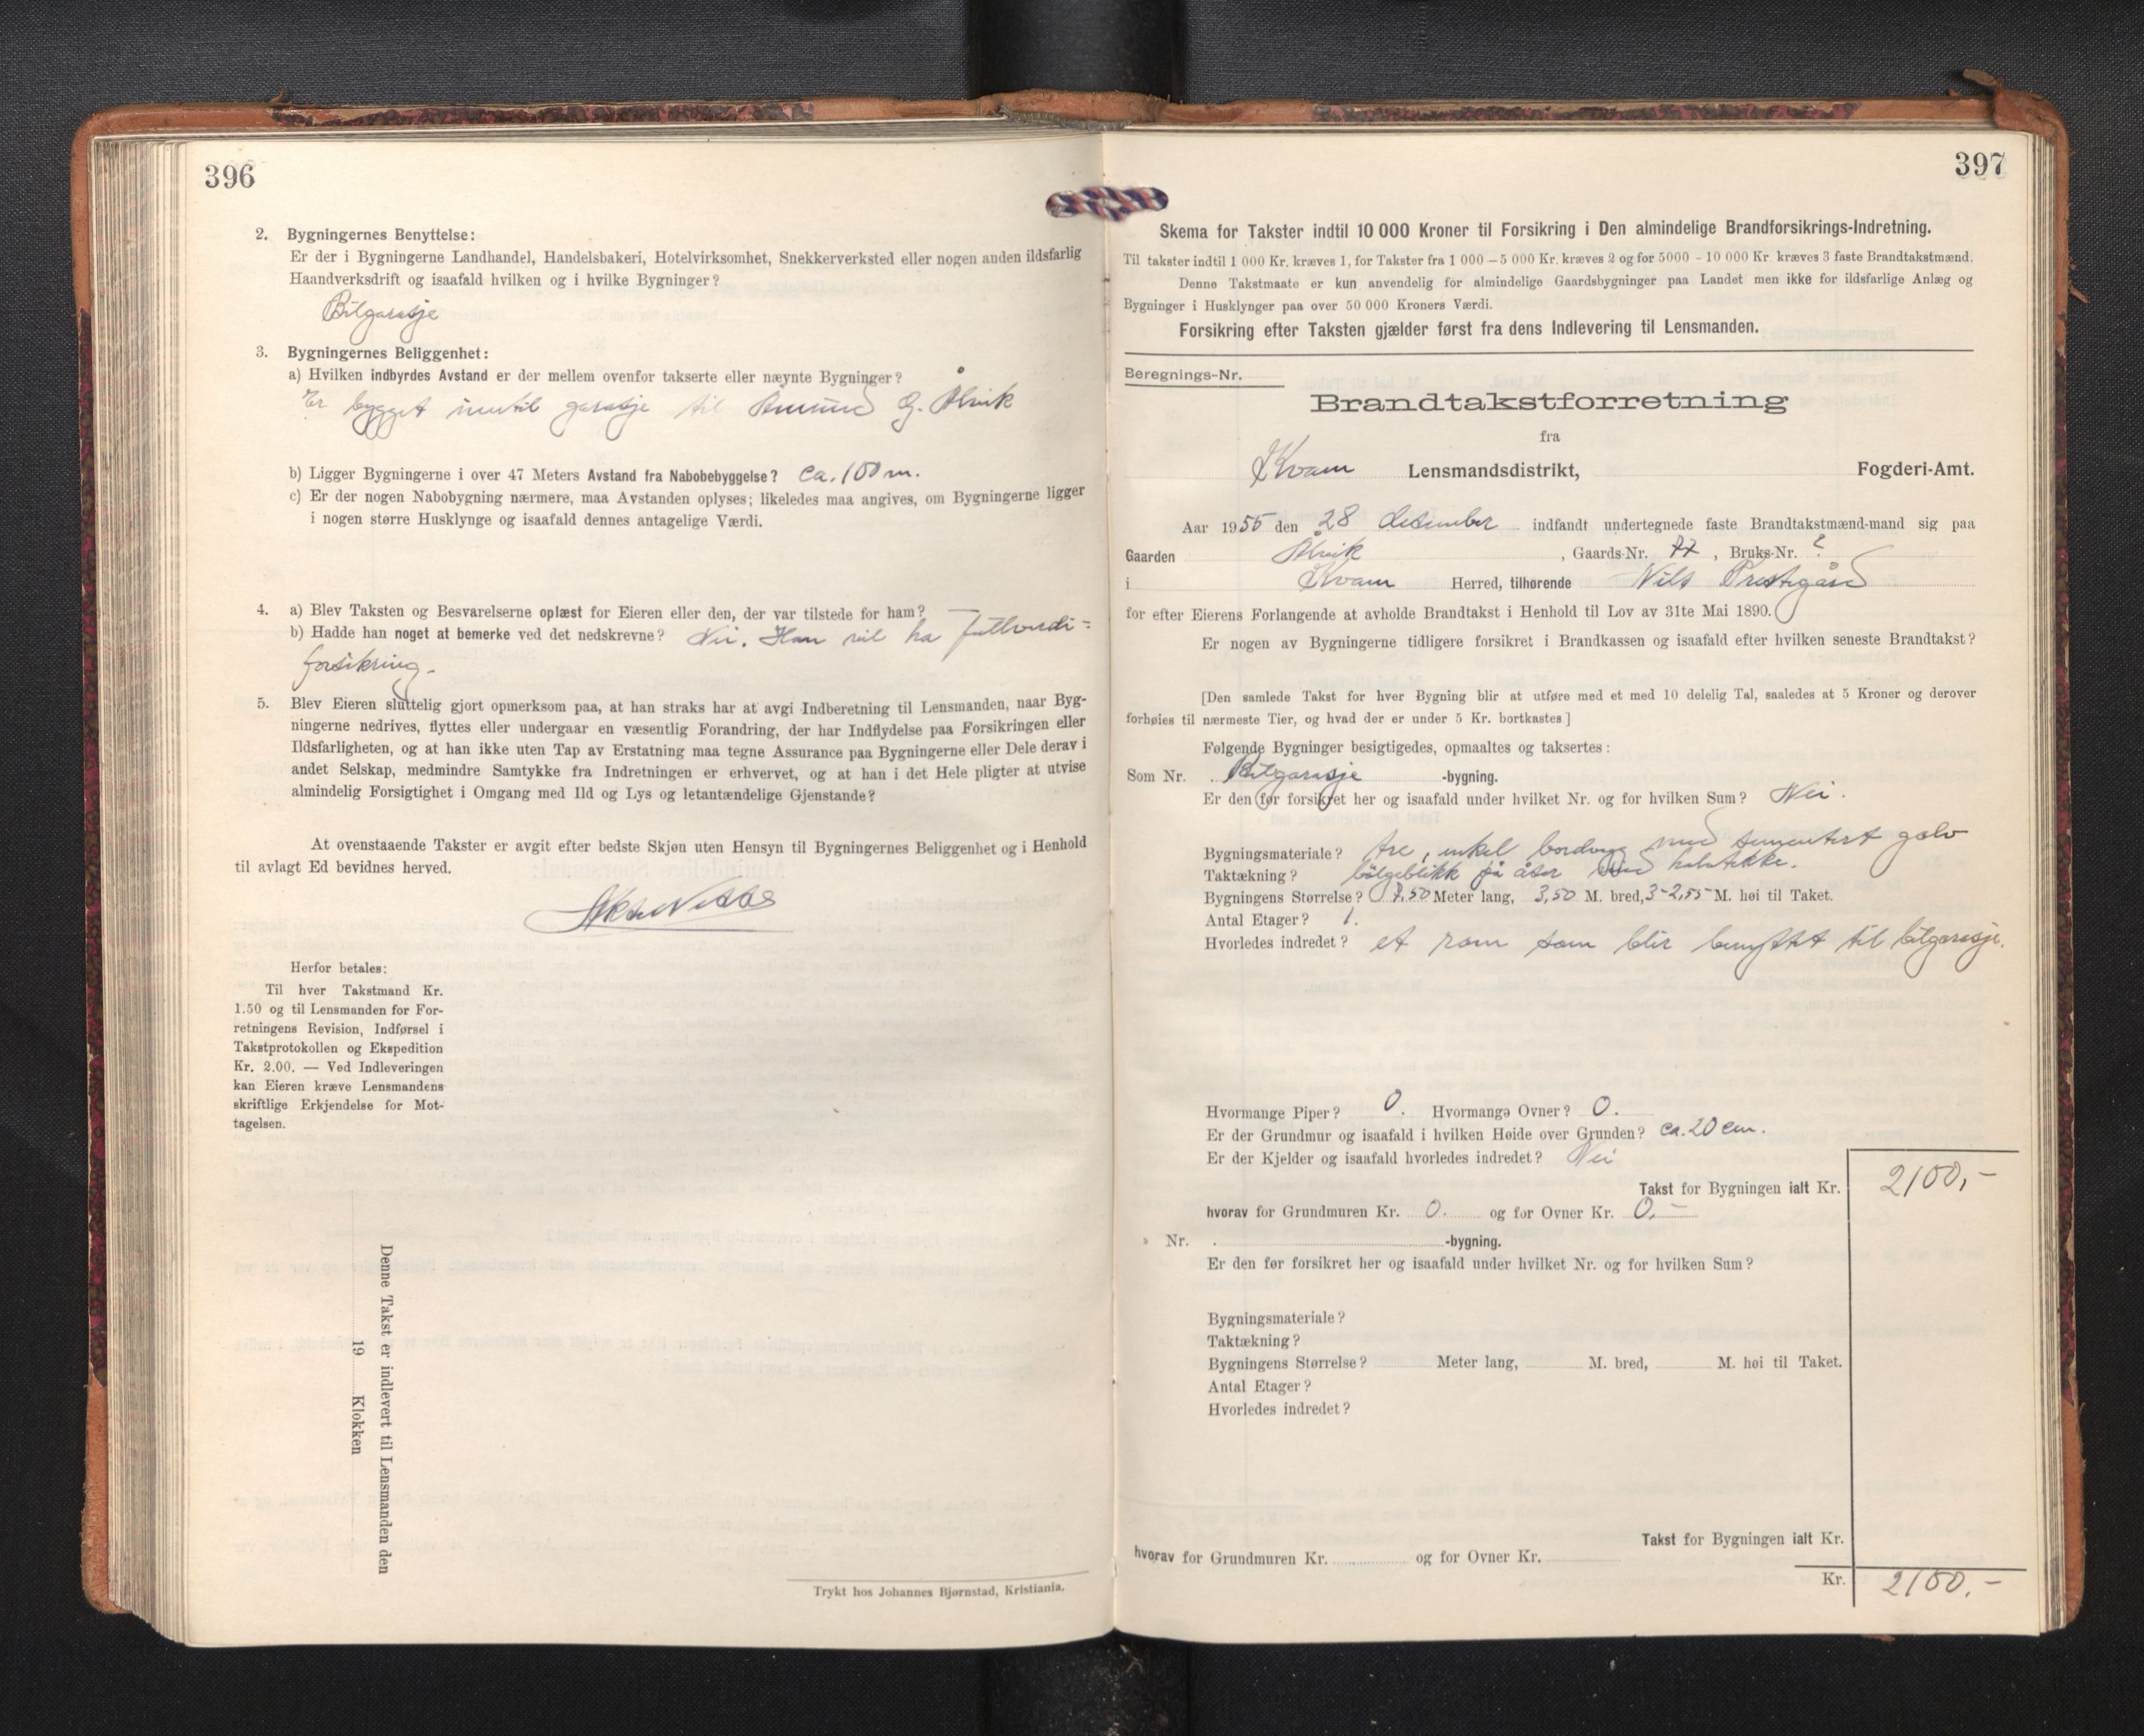 396
2. Bygningernes Benyttelse:
Er der i Bygningerne Landhandel, Handelsbakeri, Hotelvirksomhet, Snekkerverksted eller nogen anden ildsfarlig
Haandverksdrift og isaafald hvilken og i hvilke Bygninger?
Bilgarasje
3. Bygningernes Beliggenhet:
a) Hvilken indbyrdes Avstand er der mellem ovenfor takserte eller næynte Bygninger?
Er bygget inntil garasje til Amund G. Ålvik
b) Ligger Bygningerne i over 47 Meters Avstand fra Nabobebyggelse? ca. 100 m.
c) Er der nogen Nabobygning nærmere, maa Avstanden oplyses; likeledes maa angives, om Bygningerne ligger
i nogen større Husklynge og isaafald dennes antagelige Værdi.
4. a) Blev Taksten og Besvarelserne oplæst for Eieren eller den, der var tilstede for ham? —
b) Hadde han noget at bemerke ved det nedskrevne? Nei. Han vil ha fullverdi=
forsikring.
5. Blev Eieren sluttelig gjort opmerksom paa, at han straks har at avgi Indberetning til Lensmanden, naar Byg-
ningerne nedrives, flyttes eller undergaar en væsentlig Forandring, der har Indflydelse paa Forsikringen eller
Ildsfarligheten, og at han ikke uten Tap av Erstatning maa tegne Assurance paa Bygningerne eller Dele derav i
andet Selskap, medmindre Samtykke fra Indretningen er erhvervet, og at han i det Hele pligter at utvise
almindelig Forsigtighet i Omgang med Ild og Lys og letantændelige Gjenstande?
At ovenstaaende Takster er avgit efter bedste Skjøn uten Hensyn til Bygningernes Beliggenhet og i Henhold
til avlagt Ed bevidnes herved.
Herfor betales:
Til hver Takstmand Kr.
1.50 og til Lensmanden for For-
retningens Revision, Indførsel i
Takstprotokollen og Ekspedition
Kr. 2.00. — Ved Indleveringen
kan Eieren kræve Lensmandens
skriftlige Erkjendelse for Mot-
tagelsen.
Denne Takst er indlevert til Lensmanden den
19 Klokken
Trykt hos Johannes Bjørnstad, Kristiania.
397
Skema for Takster indtil 10 000 Kroner til Forsikring i Den almindelige Brandforsikrings-Indretning.
Til takster indtil 1 000 Kr. kræves 1, for Takster fra 1 000 — 5 000 Kr. kræves 2 og for 5000 - 10 000 Kr. kræves 3 faste Brandtakstmænd.
Denne Takstmaate er kun anvendelig for almindelige Gaardsbygninger paa Landet men ikke for ildsfarlige Anlæg og
Bygninger i Husklynger paa over 50 000 Kroners Værdi.
Forsikring efter Taksten gjælder først fra dens Indlevering til Lensmanden.
Beregnings-Nr.
Brandtakstforretning
fra
Kvam Lensmandsdistrikt, Fogderi-Amt.
Aar 1955 den 28 desember indfandt undertegnede faste Brandtakstmænd-mand sig paa
Gaarden Ålvik , Gaards-Nr. 77 , Bruks-Nr. ?
i Kvam Herred, tilhørende Nils Prestegård
for efter Eierens Forlangende at avholde Brandtakst i Henhold til Lov av 31te Mai 1890.
Er nogen av Bygningerne tidligere forsikret i Brandkassen og isaafald efter hvilken seneste Brandtakst?
[Den samlede Takst for hver Bygning blir at utføre med et med 10 delelig Tal, saaledes at 5 Kroner og derover
forhøies til nærmeste Tier, og hvad der er under 5 Kr. bortkastes.]
Følgende Bygninger besigtigedes, opmaaltes og taksertes:
Som Nr. Bilgarasje -bygning.
Er den før forsikret her og isaafald under hvilket Nr. og for hvilken Sum? Nei.
Bygningsmateriale? tre, enkel bordvegg med sementert golv
Taktækning? bølgeblikk på åser
Bygningens Størrelse? 7,50 Meter lang, 3,50 M. bred, 3-2,55 M. høi til Taket.
Antal Etager? 1.
Hvorledes indredet? et rom som blir benyttet til bilgarasje.
Hvormange Piper? 0. Hvormange Ovner? 0.
Er der Grundmur og isaafald i hvilken Høide over Grunden? ca. 20 cm.
Er der Kjelder og isaafald hvorledes indredet? Nei
Takst for Bygningen ialt Kr. 2100,-
hvorav for Grundmuren Kr. 0. og for Ovner Kr. 0,-
Nr. -bygning.
Er den før forsikret her og isaafald under hvilket Nr. og for hvilken Sum?
Bygningsmateriale?
Taktækning?
Bygningens Størrelse? Meter lang, M. bred, M. høi til Taket.
Antal Etager?
Hvorledes indredet?
Takst for Bygningen ialt Kr.
hvorav for Grundmuren Kr. og for Ovner Kr.
Kr. 2100.-